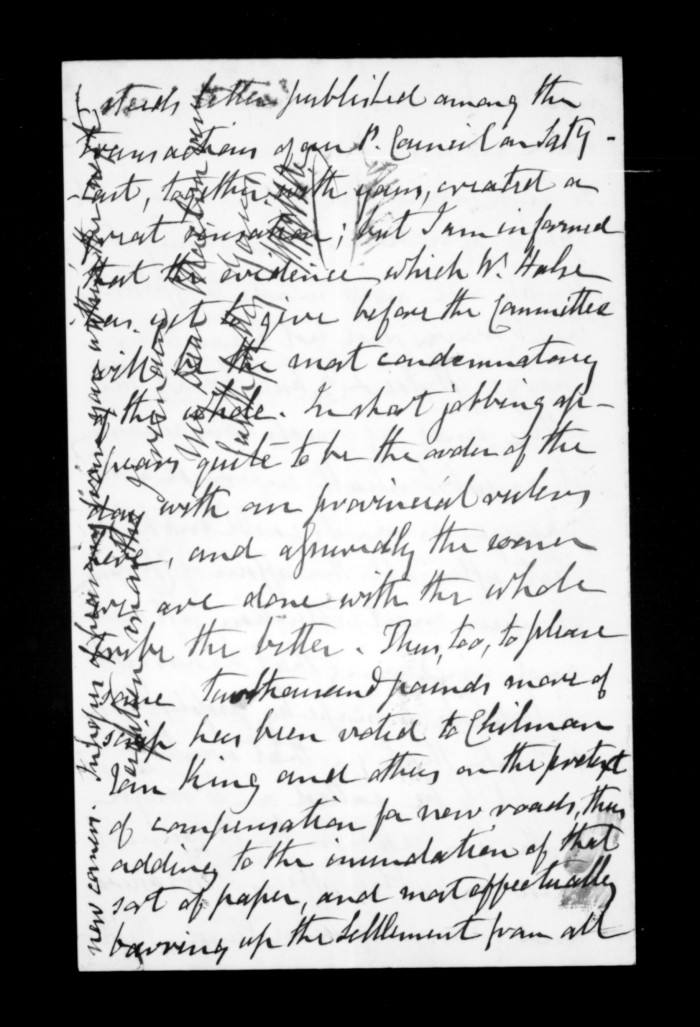 steeds letter published among the
transactions of our P. Council on Saty
last, together with yours, created a
great sensation; but I am informed
that the evidence which Wm. Halse
has yet to give before the Committee
will be the most condemnatory
of the whole. In short jobbing ap-
pears quite to be the order of the
day with our provincial rulers
here, and assuredly the sooner
we are done with the whole
tribe the better. Thus, too, to please
some two thousand pounds more of
scrip has been voted to Chilman
Tom King and others on the pretext
of compensation for new roads, thus
adding to the inundation of that
sort of paper, and most effectually
barring up the Settlement from all
new comers. In hopes of hearing from you within the next
I remain
My dear
faithfully yours